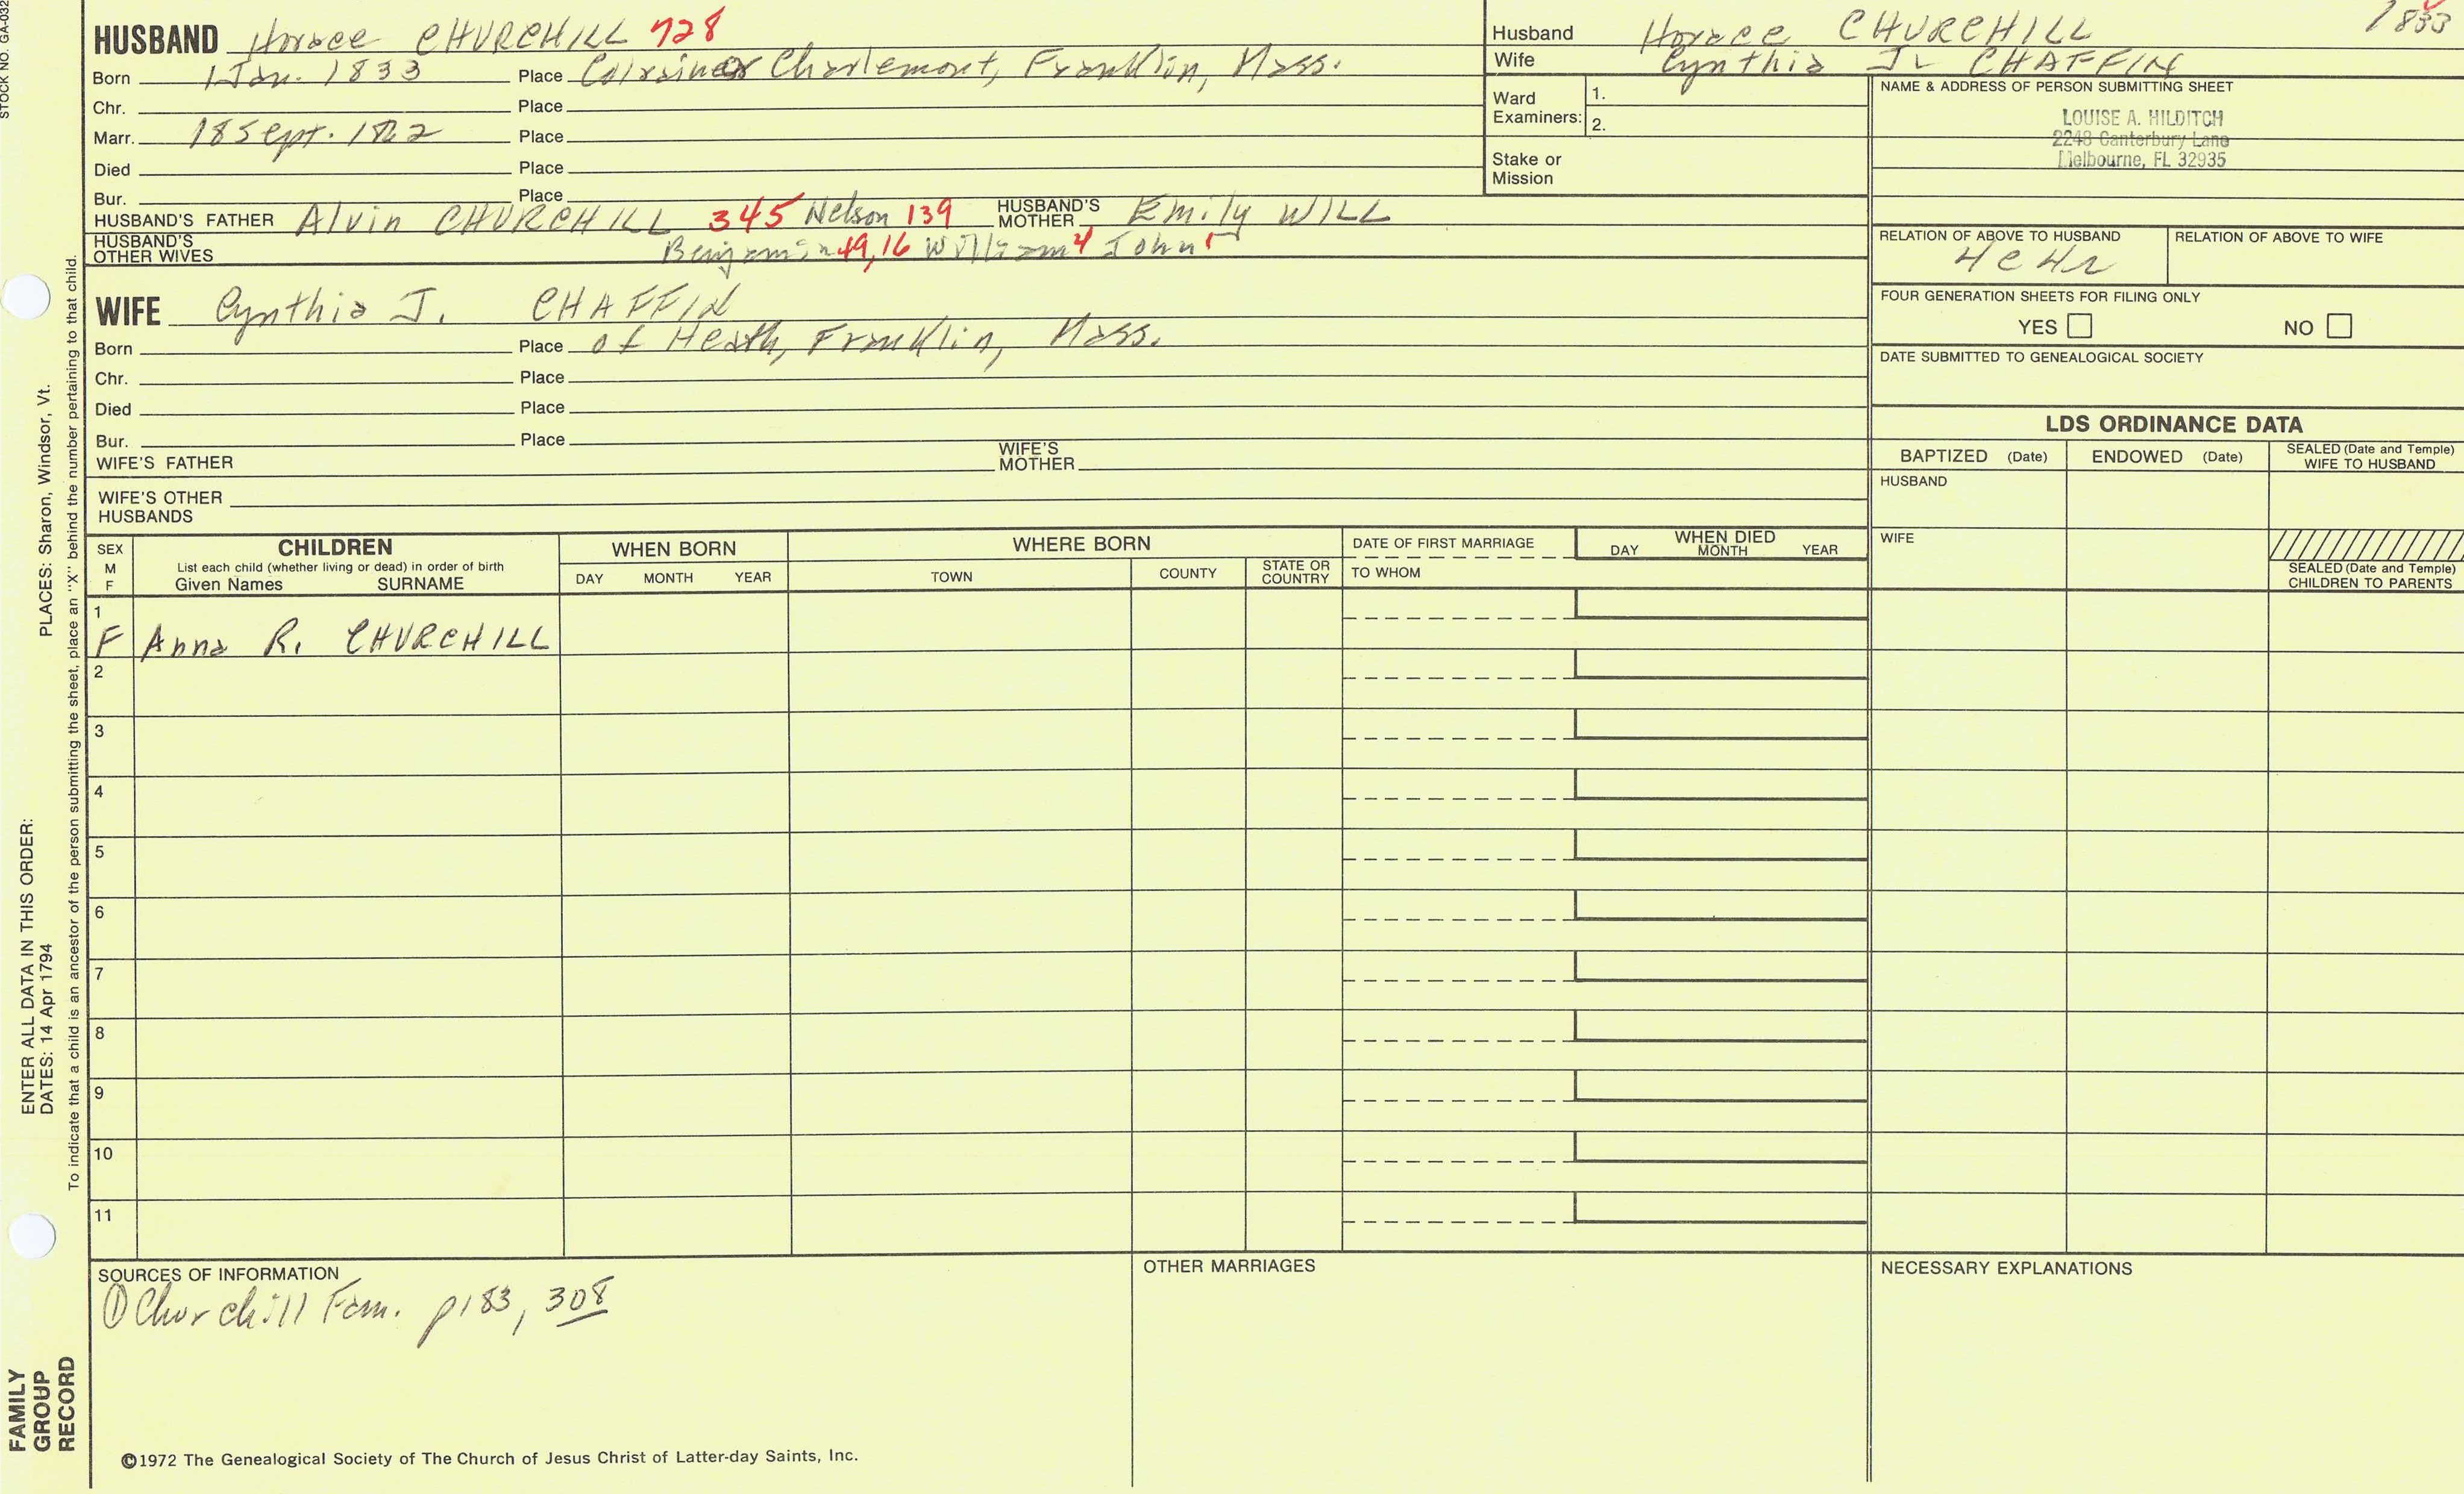 STOCK NO. GA-032
HUSBAND Horace CHURCHILL 728
Born 1 Jan. 1833 Place Colrain or Charlemont, Franklin, Mass.
Chr. Place
Marr. 18 Sept. Place
Died Place
Bur. Place
HUSBAND'S FATHER Alvin CHURCHILL 345 Nelson 139 HUSBAND'S MOTHER Emily WILL
HUSBAND'S OTHER WIVES Benjamin 49,16 William 4 John 1
WIFE Cynthia J. CHAFFIN
Born Place of Heath, Franklin, Mass.
Chr. Place
Died Place
Bur. Place
WIFE'S FATHER WIFE'S MOTHER
WIFE'S OTHER HUSBANDS
Husband Horace CHURCHILL 1833
Wife Cynthia J. CHAFFIN
Ward Examiners: 1.
2.
Stake or Mission
NAME & ADDRESS OF PERSON SUBMITTING SHEET
LOUISE A. HILDITCH
2248 Canterbury Lane
Melbourne, FL 32935
RELATION OF ABOVE TO HUSBAND RELATION OF ABOVE TO WIFE
4C4R
FOUR GENERATION SHEETS FOR FILING ONLY
YES NO
DATE SUBMITTED TO GENEALOGICAL SOCIETY
LDS ORDINANCE DATA
BAPTIZED (Date) ENDOWED (Date) SEALED (Date and Temple) WIFE TO HUSBAND
HUSBAND
WIFE
SEALED (Date and Temple) CHILDREN TO PARENTS
SEX M F
CHILDREN
List each child (whether living or dead) in order of birth
Given Names SURNAME
WHEN BORN
DAY MONTH YEAR
WHERE BORN
TOWN COUNTY STATE OR COUNTRY
DATE OF FIRST MARRIAGE
TO WHOM
WHEN DIED
DAY MONTH YEAR
1
F Anna R. CHURCHILL
2
3
4
5
6
7
8
9
10
11
SOURCES OF INFORMATION
① Churchill Fam. p183, 308
OTHER MARRIAGES
NECESSARY EXPLANATIONS
©1972 The Genealogical Society of The Church of Jesus Christ of Latter-day Saints, Inc.
FAMILY GROUP RECORD
ENTER ALL DATA IN THIS ORDER:
DATES: 14 Apr 1794 PLACES: Sharon, Windsor, Vt.
To indicate that a child is an ancestor of the person submitting the sheet, place an "X" behind the number pertaining to that child.